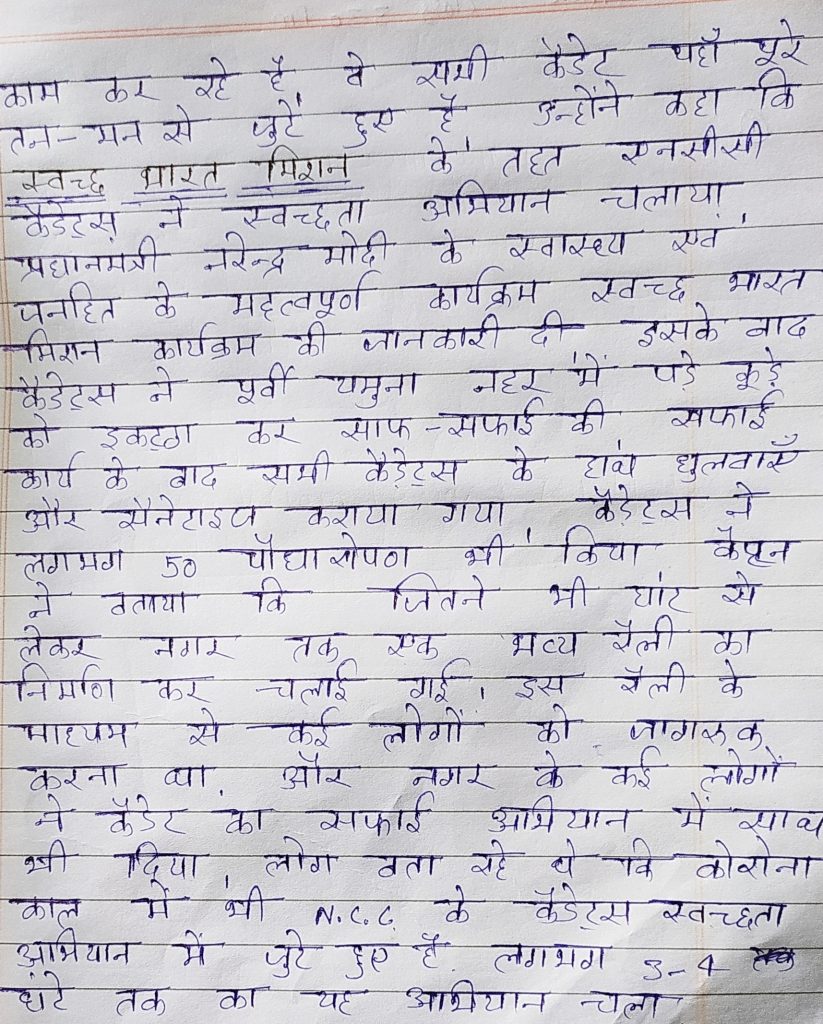 काम कर रहे है वे सभी कैडेट यहाँ पूरे
तन-मन से जुटे हुए है उन्होंने कहा कि
स्वच्छ भारत मिशन के तहत एनसीसी
कैडेट्स ने स्वच्छता अभियान चलाया
प्रधानमंत्री नरेन्द्र मोदी के स्वास्थ्य एवं
जनहित के महत्वपूर्ण कार्यक्रम स्वच्छ भारत
मिशन कार्यक्रम की जानकारी दी इसके बाद
कैडेट्स ने पूर्वी यमुना नहर में पड़े कूड़े
को इकट्ठा कर साफ-सफाई की सफाई
कार्य के बाद सभी कैडेट्स के हाथ धुलवाएँ
और सैनेटाइज कराया गया कैडेट्स ने
लगभग 50 पौधारोपण भी किया कैप्टन
ने बताया कि जितने भी घाट से
लेकर नगर तक एक भव्य रैली का
निर्माण कर चलाई गई, इस रैली के
माध्यम से कई लोगों को जागरूक
करना था, और नगर के कई लोगों
ने कैडेट का सफाई अभियान में साथ
भी दिया, लोग बता रहे थे कि कोरोना
काल में भी N.C.C. के कैडेट्स स्वच्छता
अभियान में जुटे हुए है. लगभग 3-4
घंटे तक का यह अभियान चला